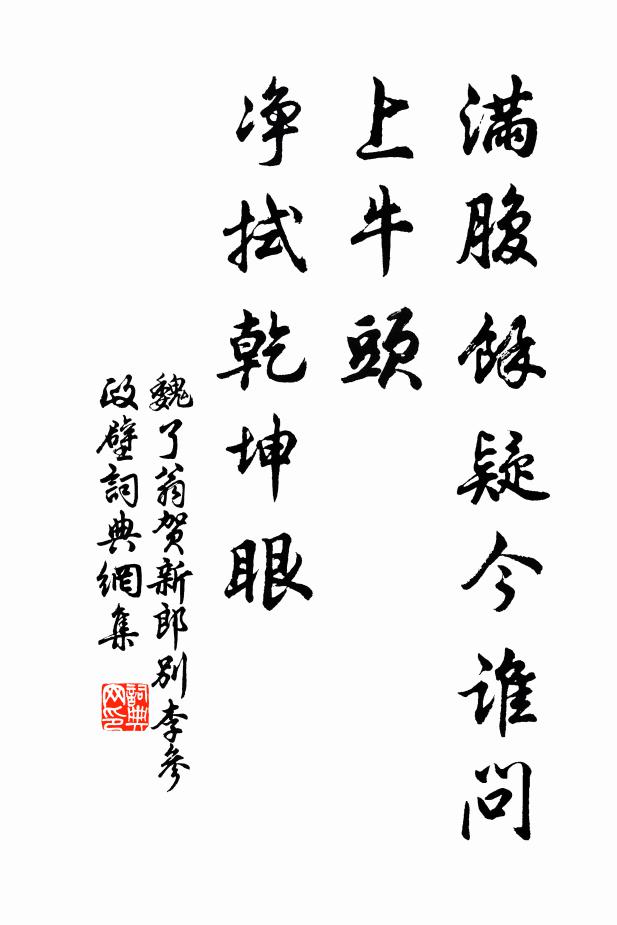 满腹餘疑今谁问
上牛頭
净拭乾坤眼
魏了翁贺新郎别李参
政壁词典網集
詞典
网印